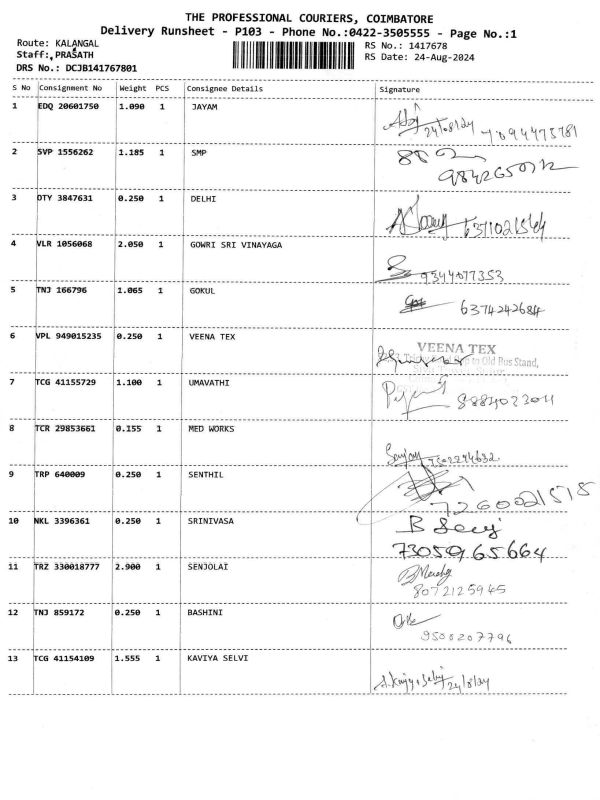 THE PROFESSIONAL COURIERS, COIMBATORE
Delivery Runsheet - P103 - Phone No.:0422-3505555 - Page No.:1
Route: KALANGAL RS No.: 1417678
Staff: PRASATH RS Date: 24-Aug-2024
DRS No.: DCJB141767801
S No Consignment No Weight PCS Consignee Details Signature
1 EDQ 20601750 1.090 1 JAYAM
24/08/24 7094475781
2 SVP 1556262 1.185 1 SMP
3 DTY 3847631 0.250 1 DELHI
4 VLR 1056068 2.050 1 GOWRI SRI VINAYAGA
9344077353
5 TNJ 166796 1.065 1 GOKUL
6374242684
6 VPL 949015235 0.250 1 VEENA TEX
VEENA TEX
to Old Bus Stand,
7 TCG 41155729 1.100 1 UMAVATHI
8884023011
8 TCR 29853661 0.155 1 MED WORKS
Sanjay
9 TRP 640009 0.250 1 SENTHIL
7260021518
10 NKL 3396361 0.250 1 SRINIVASA
7305965664
11 TRZ 330018777 2.900 1 SENJOLAI
8072125945
12 TNJ 859172 0.250 1 BASHINI
9500207796
13 TCG 41154109 1.555 1 KAVIYA SELVI
24/8/24